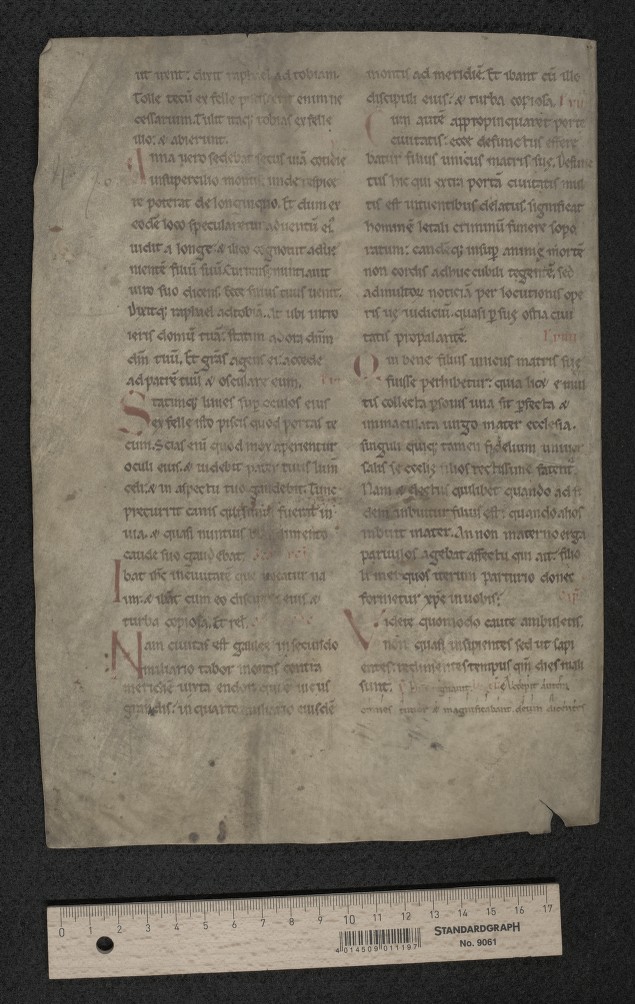 ut irent. dixit raphael ad tobiam.
Tolle tecū ex felle piscis. erit enim ne
cessarium. Tulit itaq; tobias ex felle
illo. & abierunt.
Anna vero sedebat secus uiā cotidie
in supercilio montis. unde respice
re poterat de longinquo. Et dum ex
eodē loco specularetur aduentū ei'
uidit a longe. & ilico cognouit adue
nientē filiū suū. Currensq; nuntiauit
uiro suo dicens. Ecce filius tuus uenit.
Dixitq; raphael ad tobiā. At ubi intro
ieris domū tuā. statim adora dn̄m
dm̄ tuū. Et grās agens ei. accede
ad patrē tuū & osculare eum.
Statimq; lines sup oculos eius
ex felle isto piscis quod portas te
cum. Scias enī quod mox aperientur
oculi eius. & uidebit pater tuus lum
celi. & in aspectu tuo gaudebit. Tunc
precurrit canis qui simul fuerat in
uia. & quasi nuntius
caude sue gaudebat.
Ibat ihc in ciuitatē que uocatur na
im. & ibāt cum eo discipuli eius &
turba copiosa. Et rel.
Naim ciuitas est galilee in secundo
miliario tabor montis contra
meridiē iuxta endor. qui ē uicus
grandis. in quarto miliario eiusdē
montis ad meridiē. Et ibant cū illo
discipuli eius. & turba copiosa.
Cum autē appropinquaret porte
ciuitatis. ecce defunctus effere
batur filius unicus matris sue. Defunc
tus hic qui extra portā ciuitatis mul
tis est intuentibus delatus. significat
hominē letali criminū funere sopo
ratum. eandēq; insup anime mortē
non cordis adhuc cubili tegentē. sed
ad multorū noticiā per locutionis ope
ris ue iudiciū. quasi p sue ostia ciui
tatis propalantē.
Qui bene filius unicus matris sue
fuisse perhibetur. quia licet e mul
tis collecta psonis una sit pfecta &
immaculata uirgo mater ecclesia.
singuli quiq; tamen fidelium uniuer
salis se ecclie filios rectissime fatent.
Nam & electus quilibet quando ad fi
dem inbuitur filius est. quando alios
inbuit mater. An non materno erga
paruulos agebat affectu qui ait. filio
li mei quos iterum parturio donec
formetur xp̄c in uobis?
Videte quomodo caute ambuletis.
non quasi insipientes sed ut sapi
entes. redimentes tempus qm̄ dies mali
sunt. Accepit autem
omnes timor & magnificabant deum dicentes